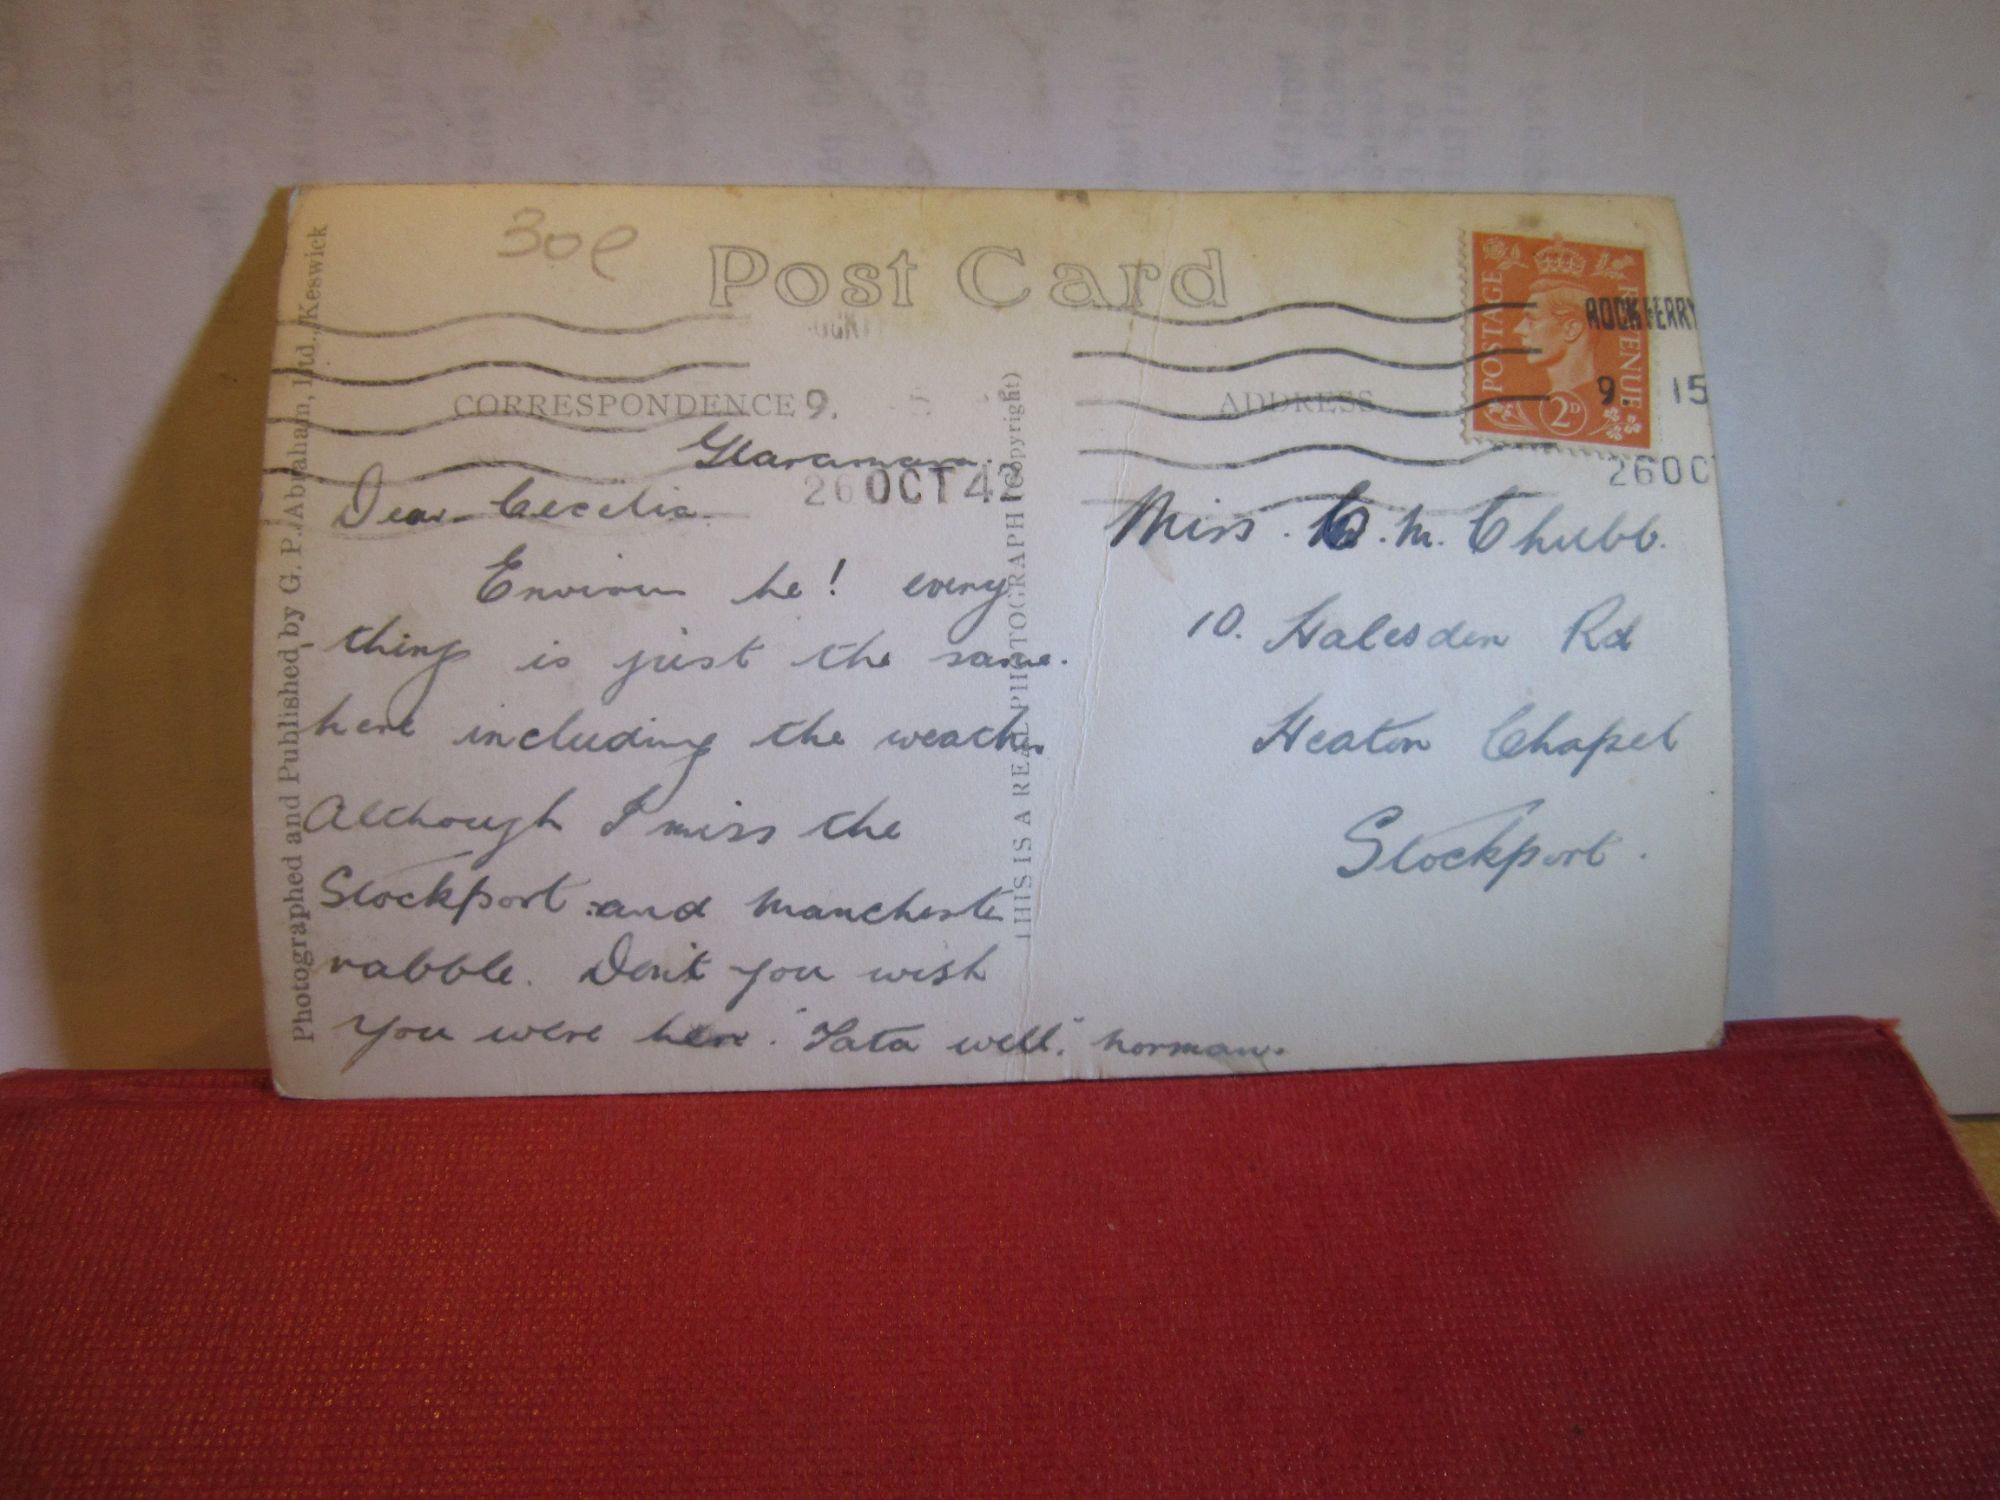 30p
Post Card
POSTAGE REVENUE
2D
ROCK FERRY
9. 15
26 OC
CORRESPONDENCE
ADDRESS
9.
26 OCT 4
Photographed and Published by G. P. Abraham, Ltd., Keswick
THIS IS A REAL PHOTOGRAPH (Copyright)
Glaramara.
Dear Cecelia.
he! every
thing is just the same.
here including the weather
Although I miss the
Stockport and Manchester
rabble. Don't you wish
you were here. "Tata well." Norman.
Miss. C. M. Chubb.
10. Halesden Rd
Heaton Chapel
Stockport.